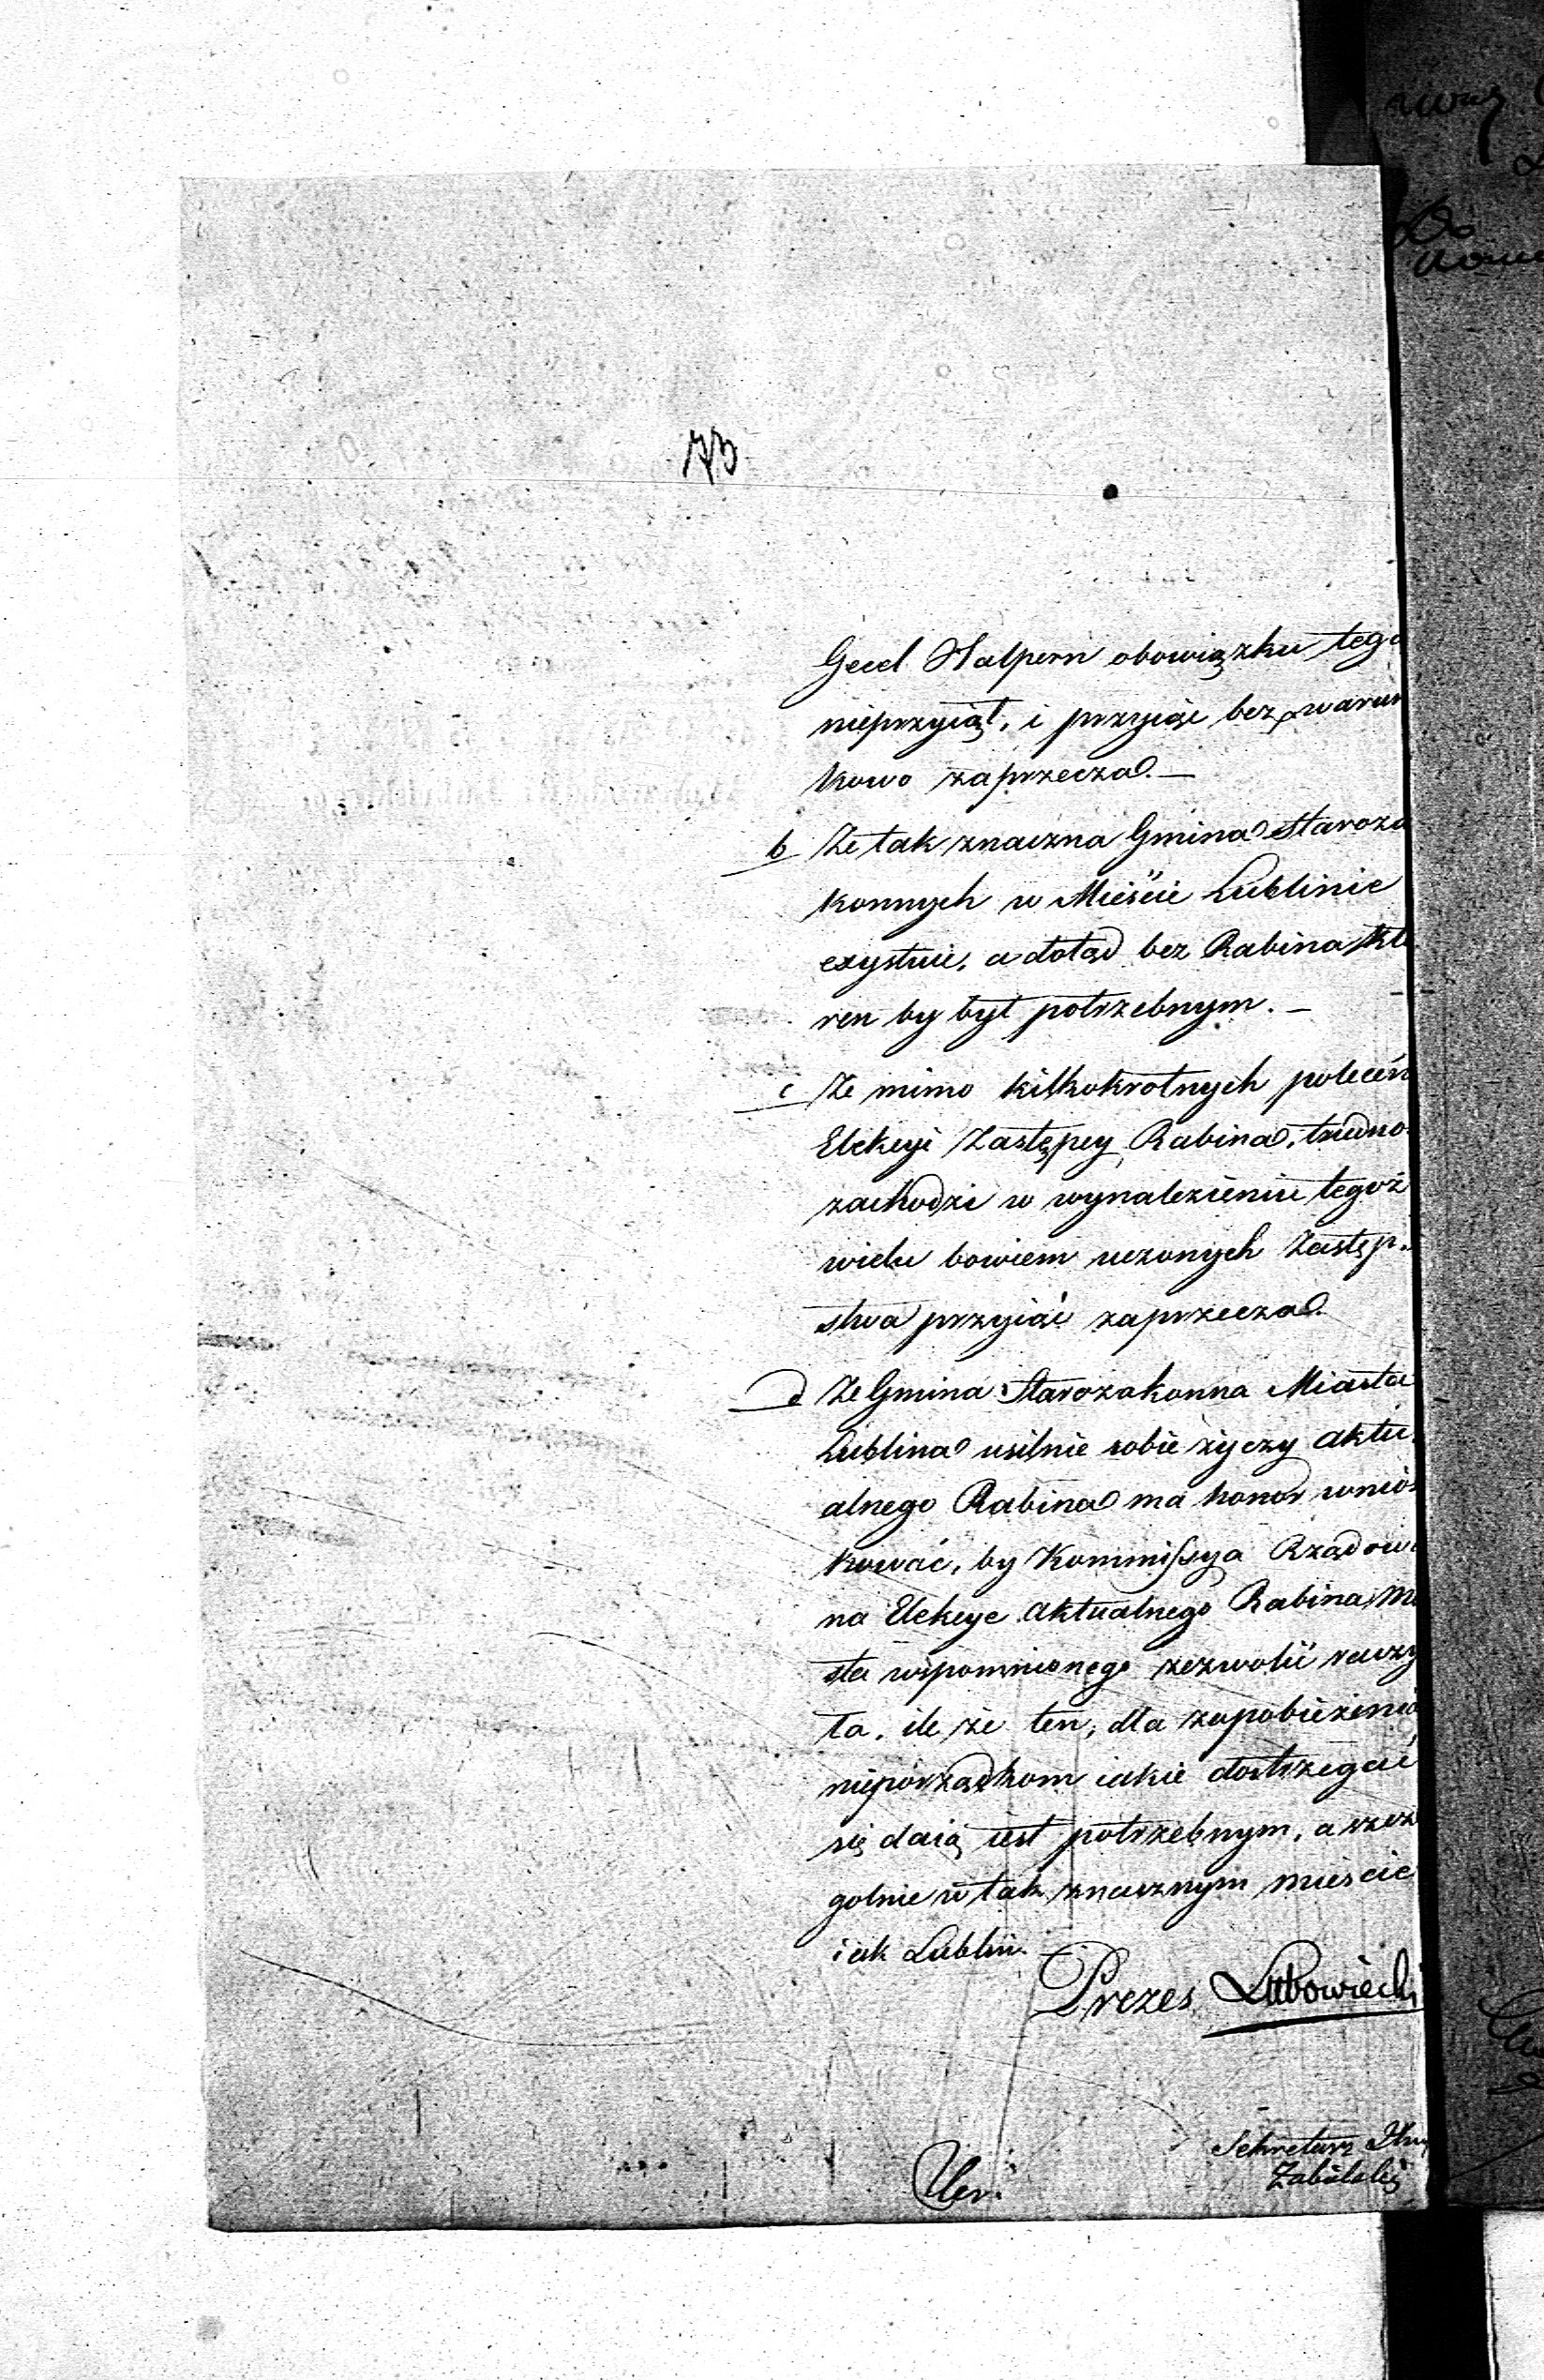 73
Gecel Halpern obowiązku tego
nieprzyiął, i przyiąć bezwarun
kowo zaprzecza. —
b Że tak znaczna Gmina Staroza
konnych w Mieście Lublinie
exystuie, a dotąd bez Rabina któ
ren by był potrzebnym. —
c Że mimo kilkokrotnych poleceń
Elekcyi Zastępcy Rabina, trudno
zachodzi w wynalezieniu tegoż
wielu bowiem uczonych Zastęp.
stwa przyiąć zaprzecza.
d Że Gmina Starozakonna Miasta
Lublina usilnie sobie życzy aktu.
alnego Rabina ma honor wnios
kować, by Kommissya Rządowa
na Elekcye aktualnego Rabina Mia
sta wspomnionego zezwolić raczy
ła, ile że ten, dla zapobieżenia
nieporządkom iakie dostrzegać
się daią iest potrzebnym, a szcze
golnie w tak znacznym mieście
iak Lublin.
Prezes Lubowiecki
Sekretarz